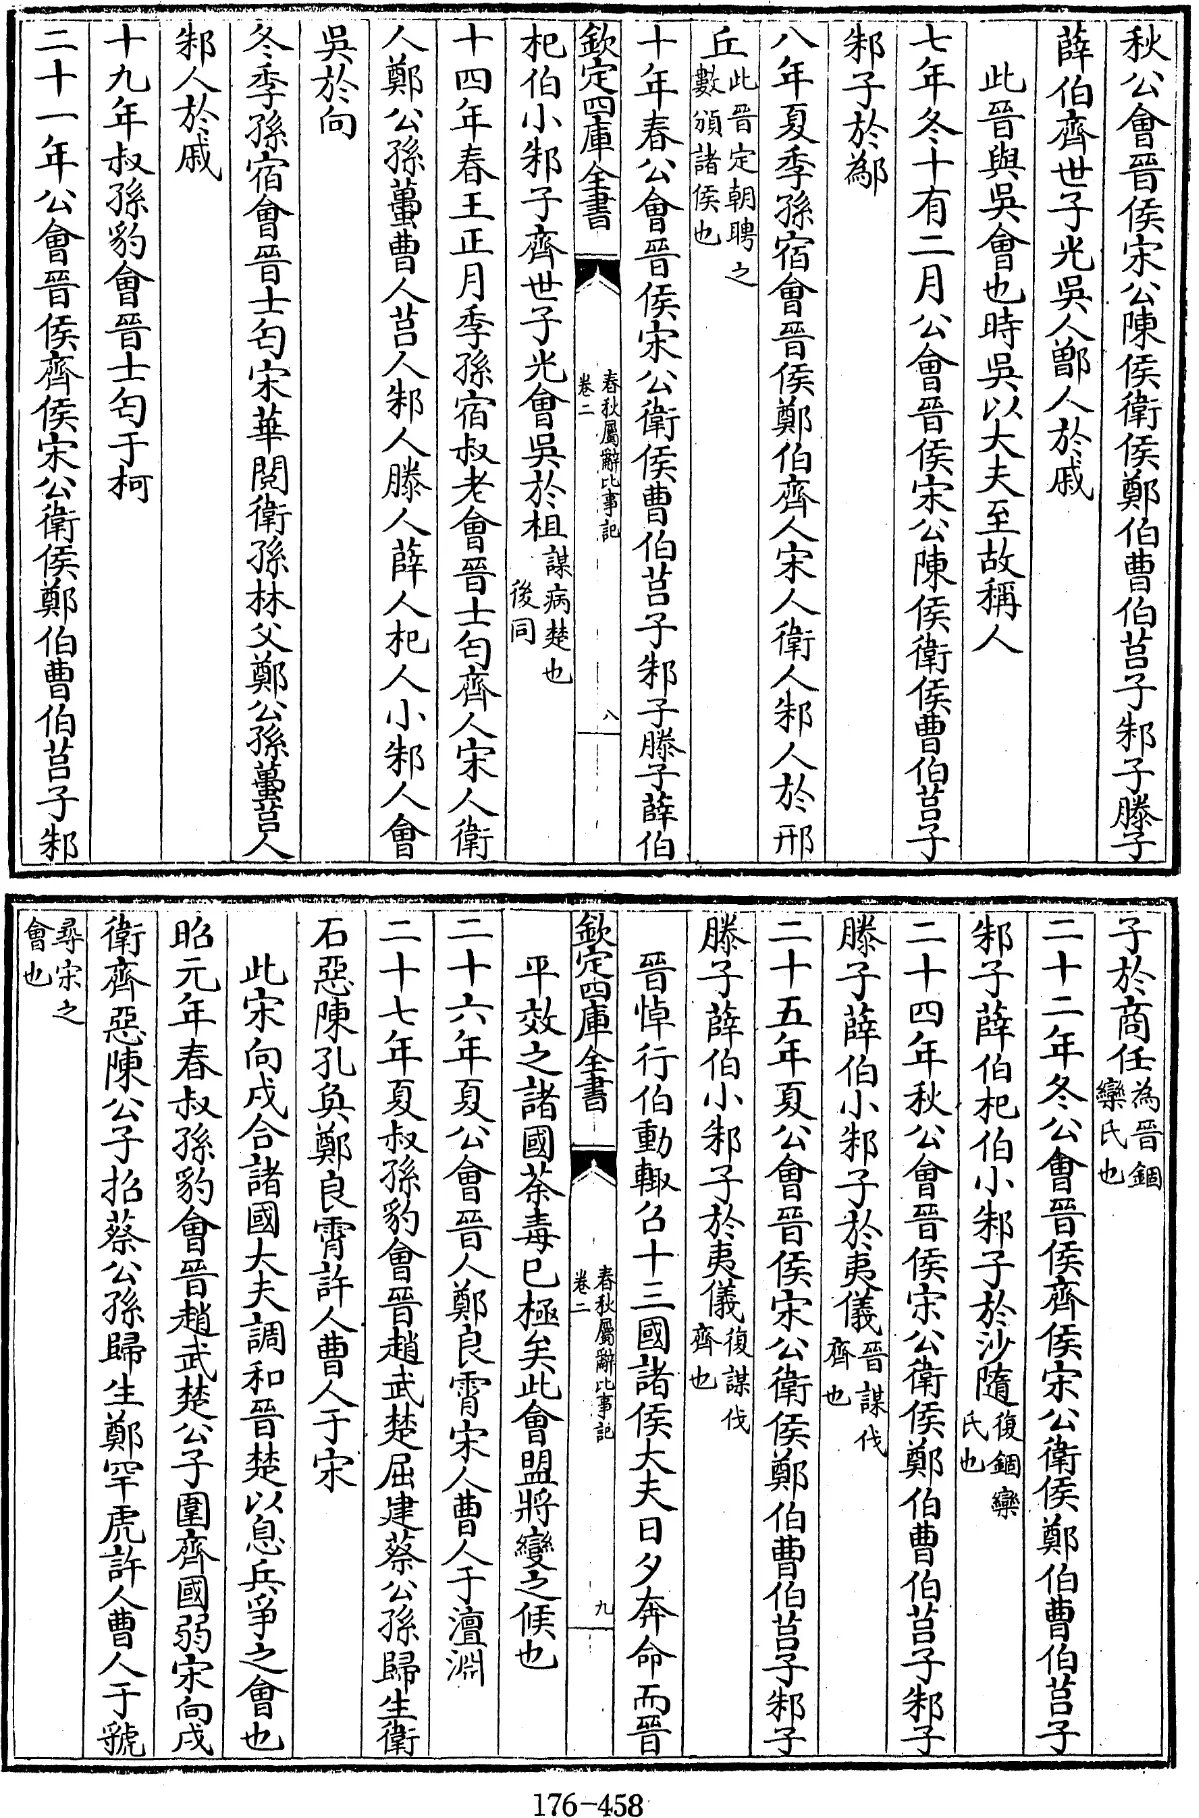 秋公會晉侯宋公陳侯衛侯鄭伯曹伯莒子邾子滕子
薛伯齊世子光吳人鄫人於戚
此晉與吳會也時吳以大夫至故稱人
七年冬十有二月公會晉侯宋公陳侯衛侯曹伯莒子
邾子於鄬
八年夏季孫宿會晉侯鄭伯齊人宋人衛人邾人於邢
丘此晉定朝聘之
數頒諸侯也
十年春公會晉侯宋公衛侯曹伯莒子邾子滕子薛伯
欽定四庫全書
春秋屬辭比事記
卷二
八
杞伯小邾子齊世子光會吳於柤謀病楚也
後同
十四年春王正月季孫宿叔老會晉士匄齊人宋人衛
人鄭公孫蠆曹人莒人邾人滕人薛人杞人小邾人會
吳於向
冬季孫宿會晉士匄宋華閱衛孫林父鄭公孫蠆莒人
邾人於戚
十九年叔孫豹會晉士匄于柯
二十一年公會晉侯齊侯宋公衛侯鄭伯曹伯莒子邾
子於商任為晉錮
欒氏也
二十二年冬公會晉侯齊侯宋公衛侯鄭伯曹伯莒子
邾子薛伯杞伯小邾子於沙隨復錮欒
氏也
二十四年秋公會晉侯宋公衛侯鄭伯曹伯莒子邾子
滕子薛伯小邾子於夷儀晉謀伐
齊也
二十五年夏公會晉侯宋公衛侯鄭伯曹伯莒子邾子
滕子薛伯小邾子於夷儀復謀伐
齊也
晉悼行伯動輙召十三國諸侯大夫日夕奔命而晉
欽定四庫全書
春秋屬辭比事記
卷二
九
平效之諸國荼毒已極矣此會盟將變之候也
二十六年夏公會晉人鄭良霄宋人曹人于澶淵
二十七年夏叔孫豹會晉趙武楚屈建蔡公孫歸生衛
石惡陳孔奐鄭良霄許人曹人于宋
此宋向戌合諸國大夫調和晉楚以息兵爭之會也
昭元年春叔孫豹會晉趙武楚公子圍齊國弱宋向戌
衛齊惡陳公子招蔡公孫歸生鄭罕虎許人曹人于虢
尋宋之
會也
176-458